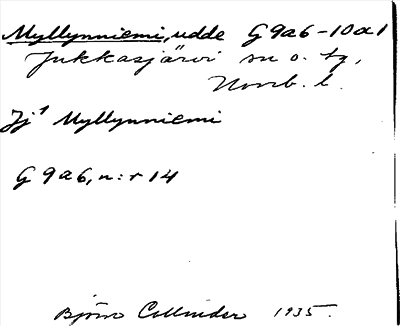 Myllynniemi, udde G9a6-10a1
Jukkasjärvi sn o. tg,
Norrb. l.
Jj¹ Myllynniemi
G9a6, n:r 14
Björn Collinder 1935.